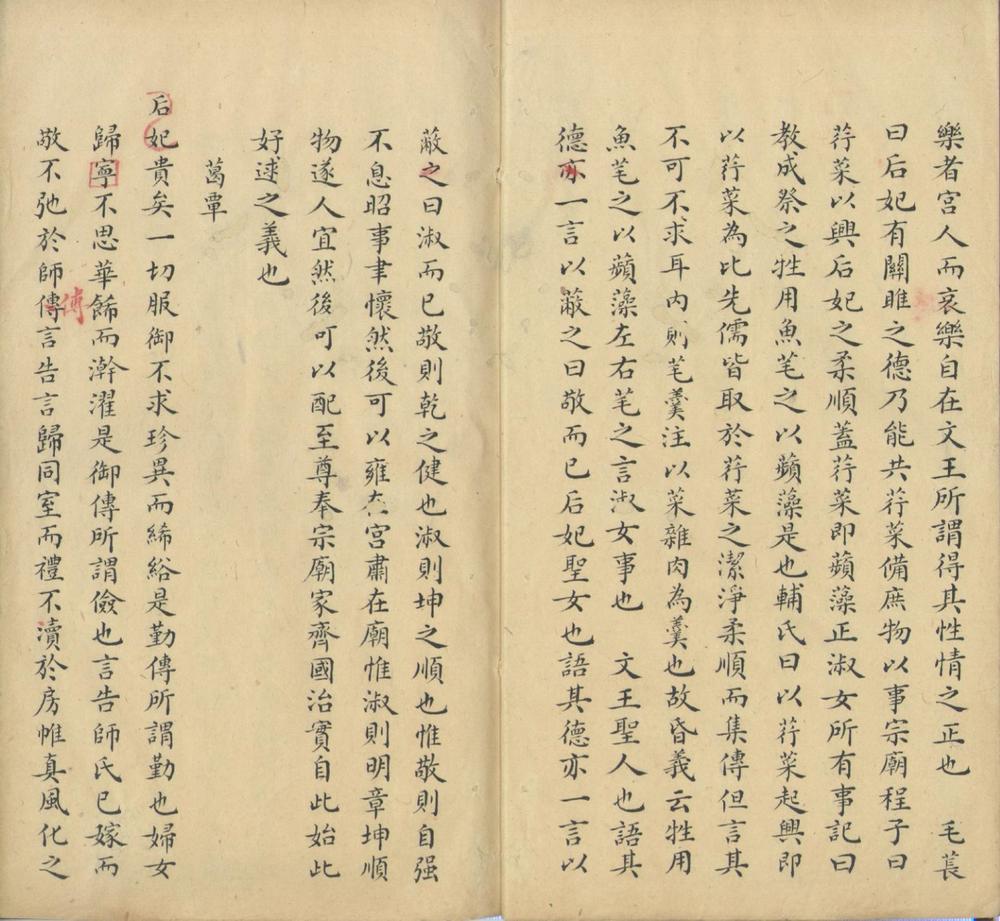 樂者宮人而哀樂自在文王所謂得其性情之正也　毛萇
曰后妃有關雎之德乃能共荇菜備庶物以事宗廟程子曰
荇菜以興后妃之柔順蓋荇菜即蘋藻正淑女所有事記曰
教成祭之牲用魚芼之以蘋藻是也輔氏曰以荇菜起興即
以荇菜為比先儒皆取於荇菜之潔淨柔順而集傳但言其
不可不求耳內則芼羹注以菜雜肉為羹也故昏義云牲用
魚芼之以蘋藻左右芼之言淑女事也　文王聖人也語其
德亦一言以蔽之曰敬而已后妃聖女也語其德亦一言以
蔽之曰淑而已敬則乾之健也淑則坤之順也惟敬則自强
不息昭事聿懷然後可以雍在宮肅在廟惟淑則明章坤順
物遂人宜然後可以配至尊奉宗廟家齊國治實自此始此
好逑之義也
葛覃
后妃貴矣一切服御不求珍異而絺綌是勤傳所謂勤也婦女
歸寧不思華餙而澣濯是御傳所謂儉也言告師氏已嫁而
敬不弛於師傳傅言告言歸同室而禮不瀆於房帷真風化之